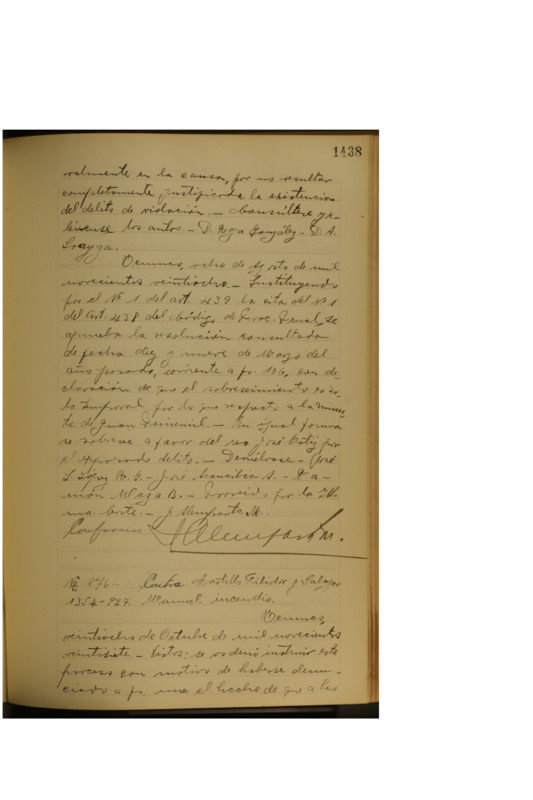 1438
ralmente en la causa, por no resultar
completamente justificada la existencia
del delito de violación. — Consúltese y e-
lévense los autos. — D. Roga González — D. A.
Temuco, ocho de Agosto de mil
novecientos veintiocho. — Sustituyendo
por el Nº 1 del art. 439 la cita del Nº 1
del art. 438 del Código de Proc. Penal, se
aprueba la resolución consultada
de fecha diez y nueve de Marzo del
año pasado, corriente a fs. 106, con de-
claración de que el sobreseimiento es so-
lo temporal por lo que respecta a la muer-
te de Juan — En igual forma
se sobresee a favor del reo José por
el expresado delito. — Devuélvase — José
S. López — José Arancibia A. — Ra-
món Meza B. — Proveído por la Ilt-
ma. Corte. — J. Alemparte M.
Conforme
Nº 846 — Contra Castillo Filidor y Salazar
1354-927. Manuel. incendio.
Temuco,
veintiocho de Octubre de mil novecientos
veintisiete — Vistos: se ordenó instruir este
proceso con motivo de haberse denun-
ciado a fs. una el hecho de que a las